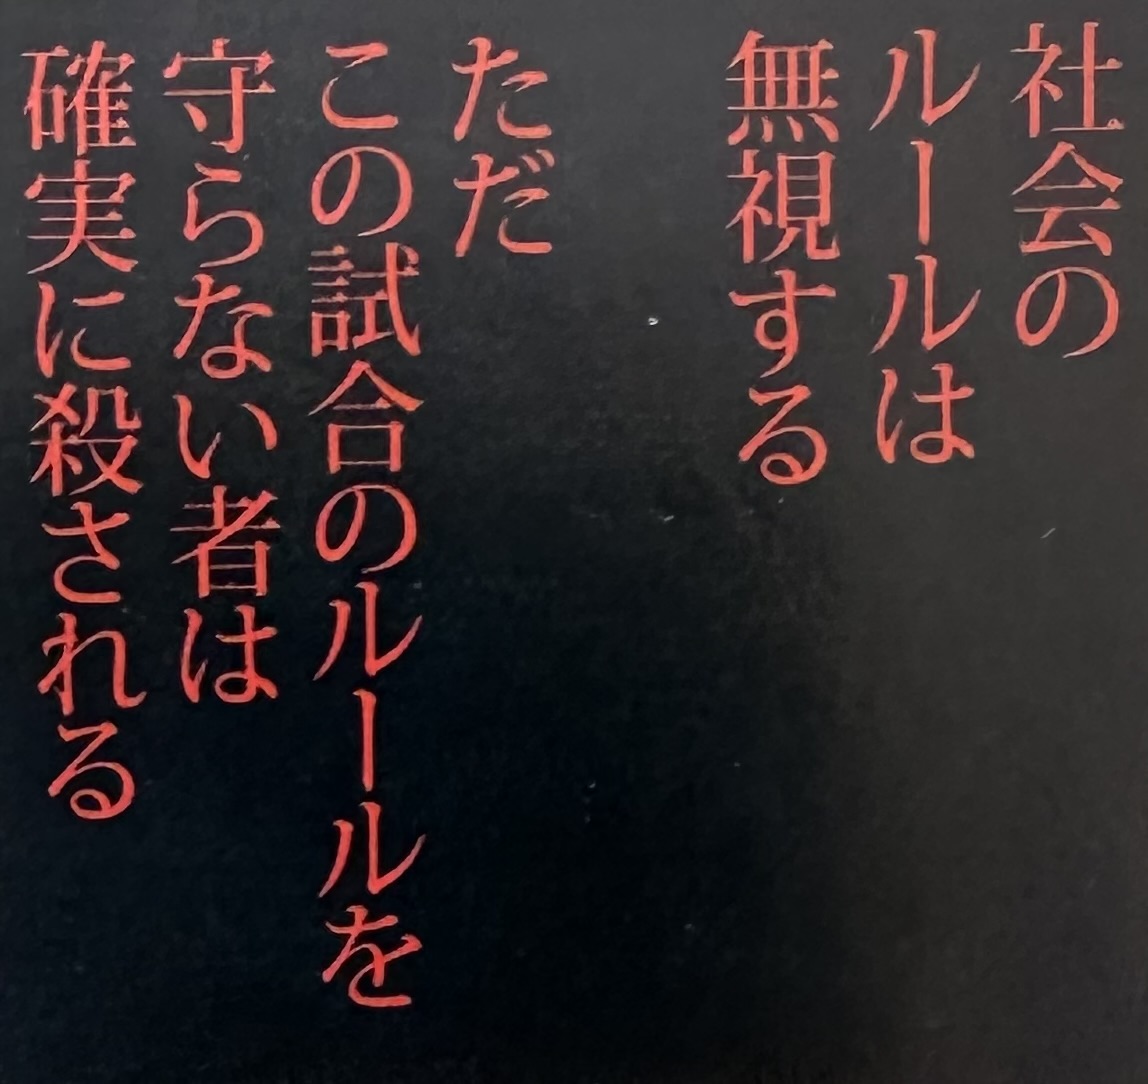 社会の
ルールは
無視する
ただ
この試合のルールを
守らない者は
確実に殺される